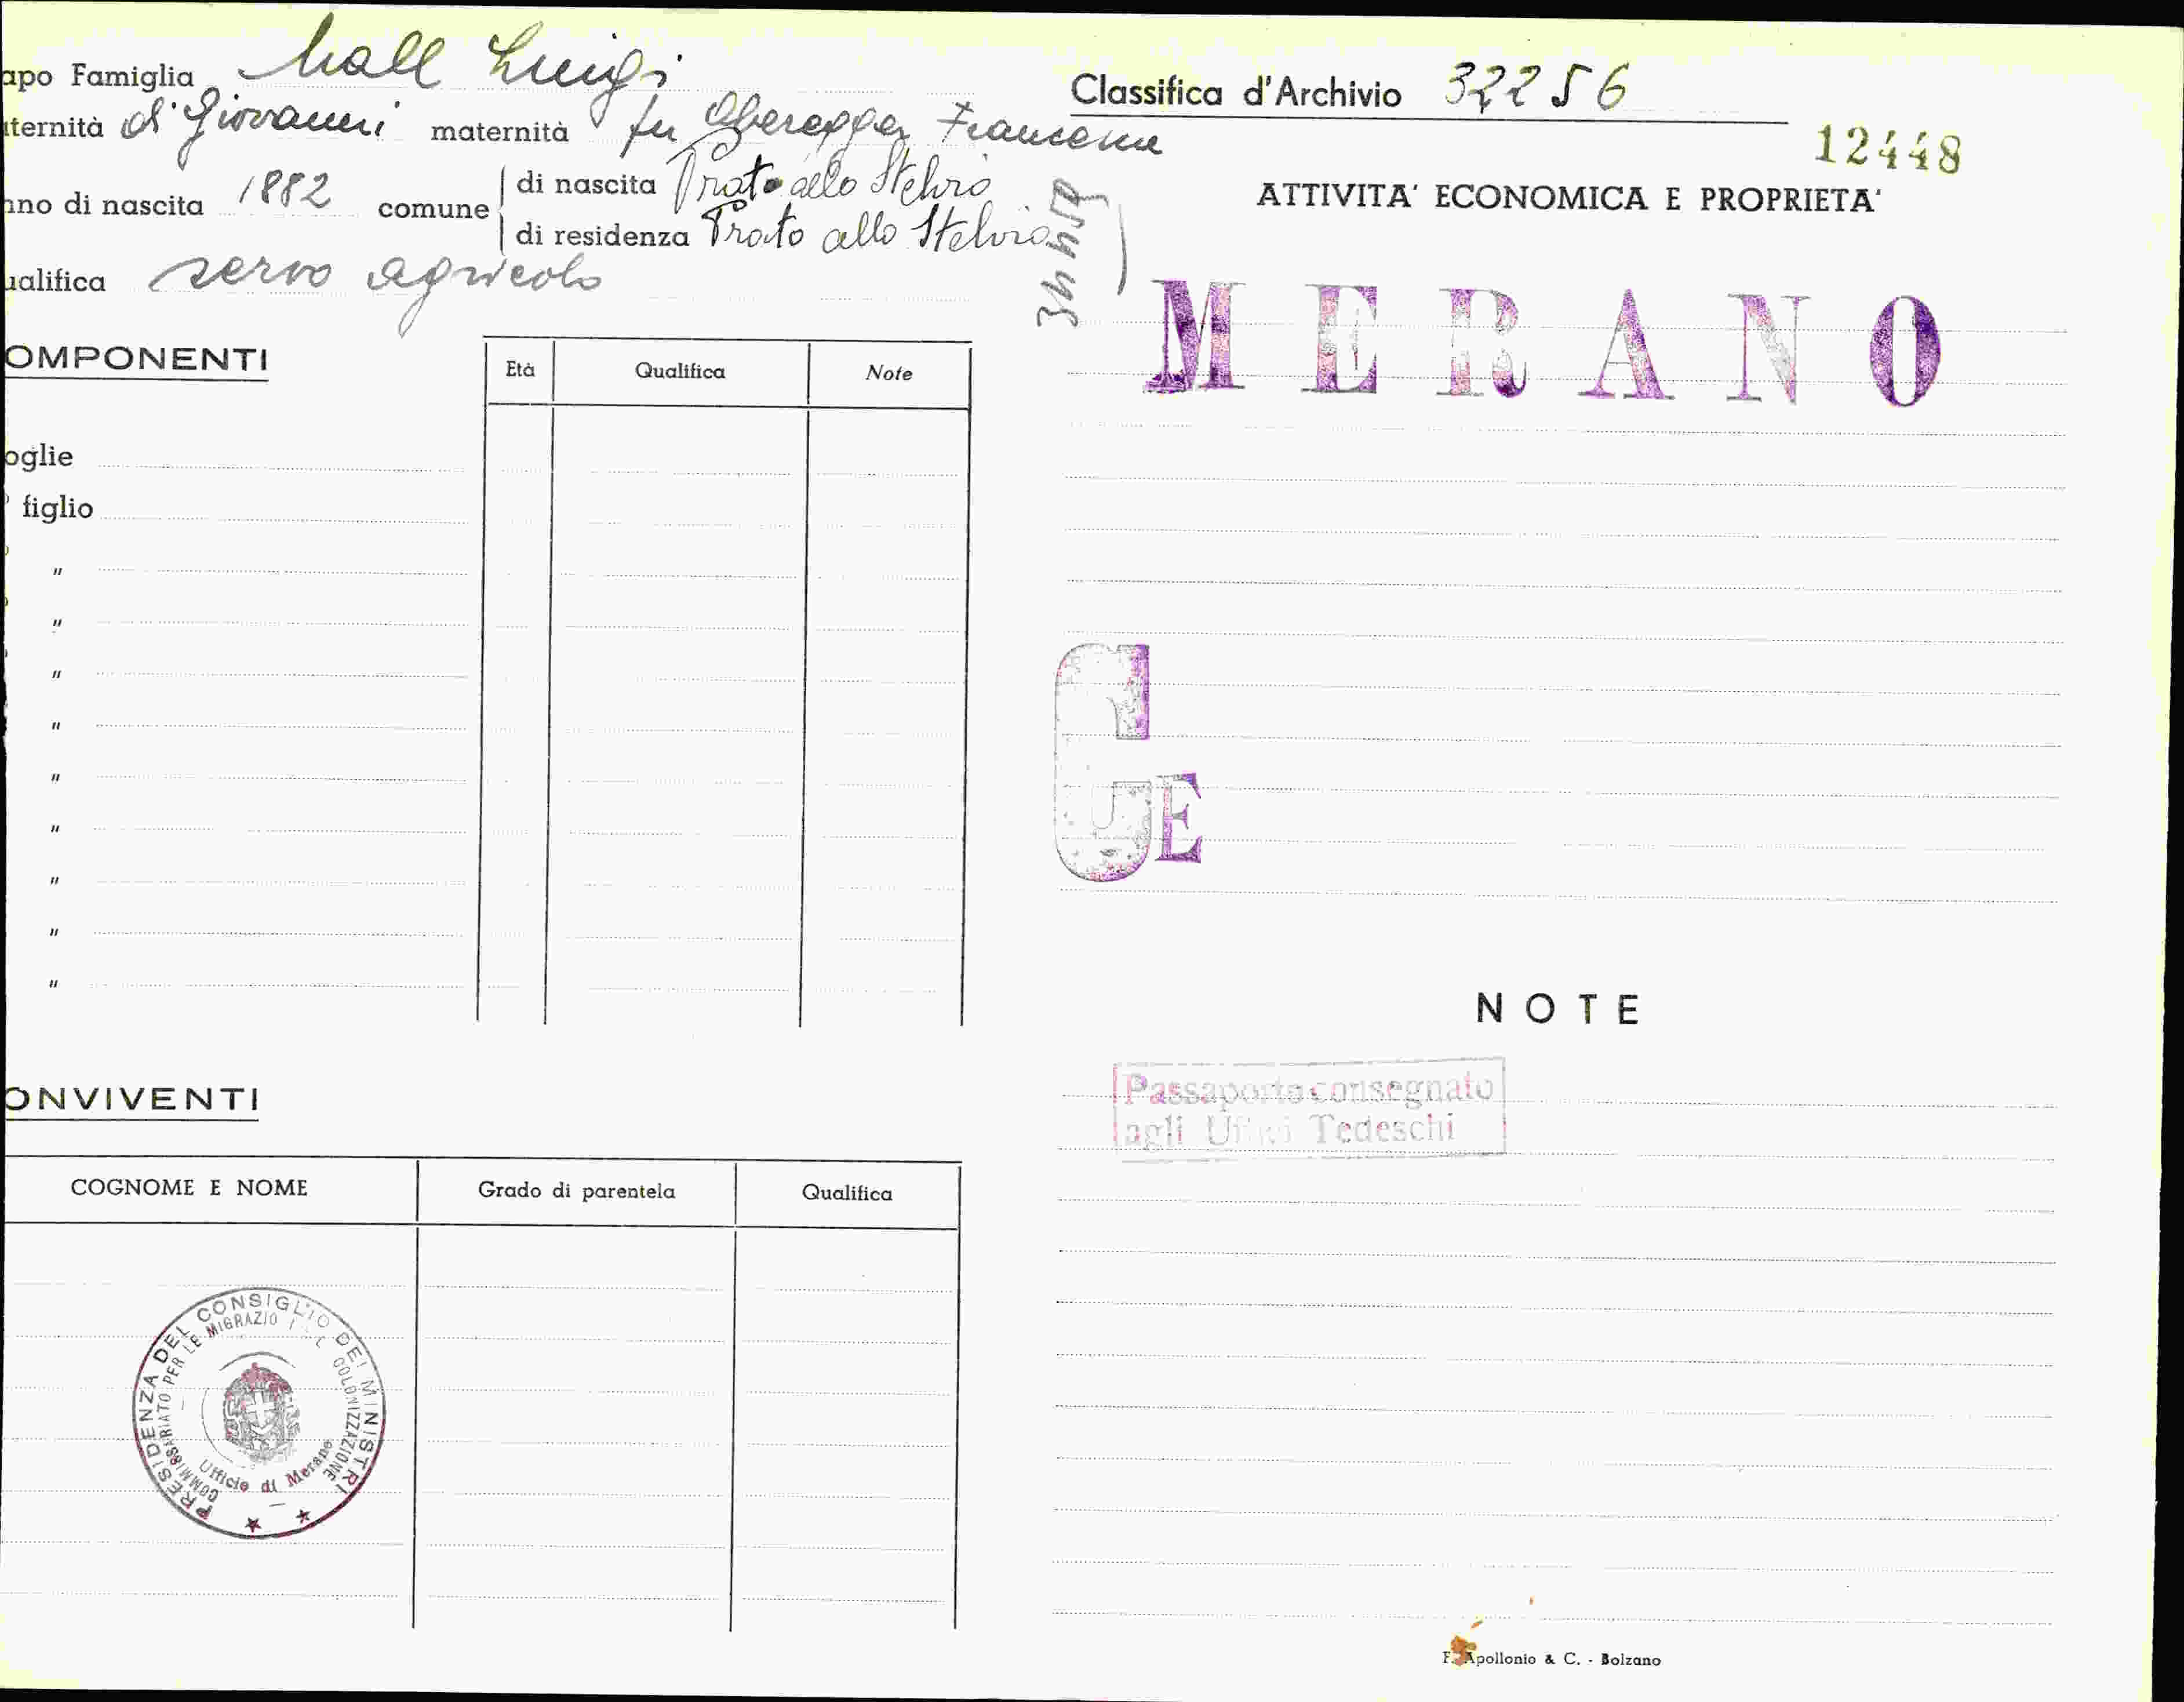 apo Famiglia Luigi
ternità di Giovanni maternità fu
nno di nascita 1882 comune di nascita Prato allo Stelvio
di residenza Prato allo Stelvio
ualifica servo agricolo
OMPONENTI
Età Qualifica Note
oglie
figlio
"
"
"
"
"
"
"
"
"
ONVIVENTI
COGNOME E NOME Grado di parentela Qualifica
PRESIDENZA DEL CONSIGLIO DEI MINISTRI
COMMISSARIATO PER LE MIGRAZIO COLONIZZAZIONE
Ufficio di Merano
Classifica d'Archivio 32256
12448
ATTIVITA' ECONOMICA E PROPRIETA'
MERANO
G
U E
NOTE
Passaporto consegnato
agli Uffici Tedeschi
F. Apollonio & C. - Bolzano